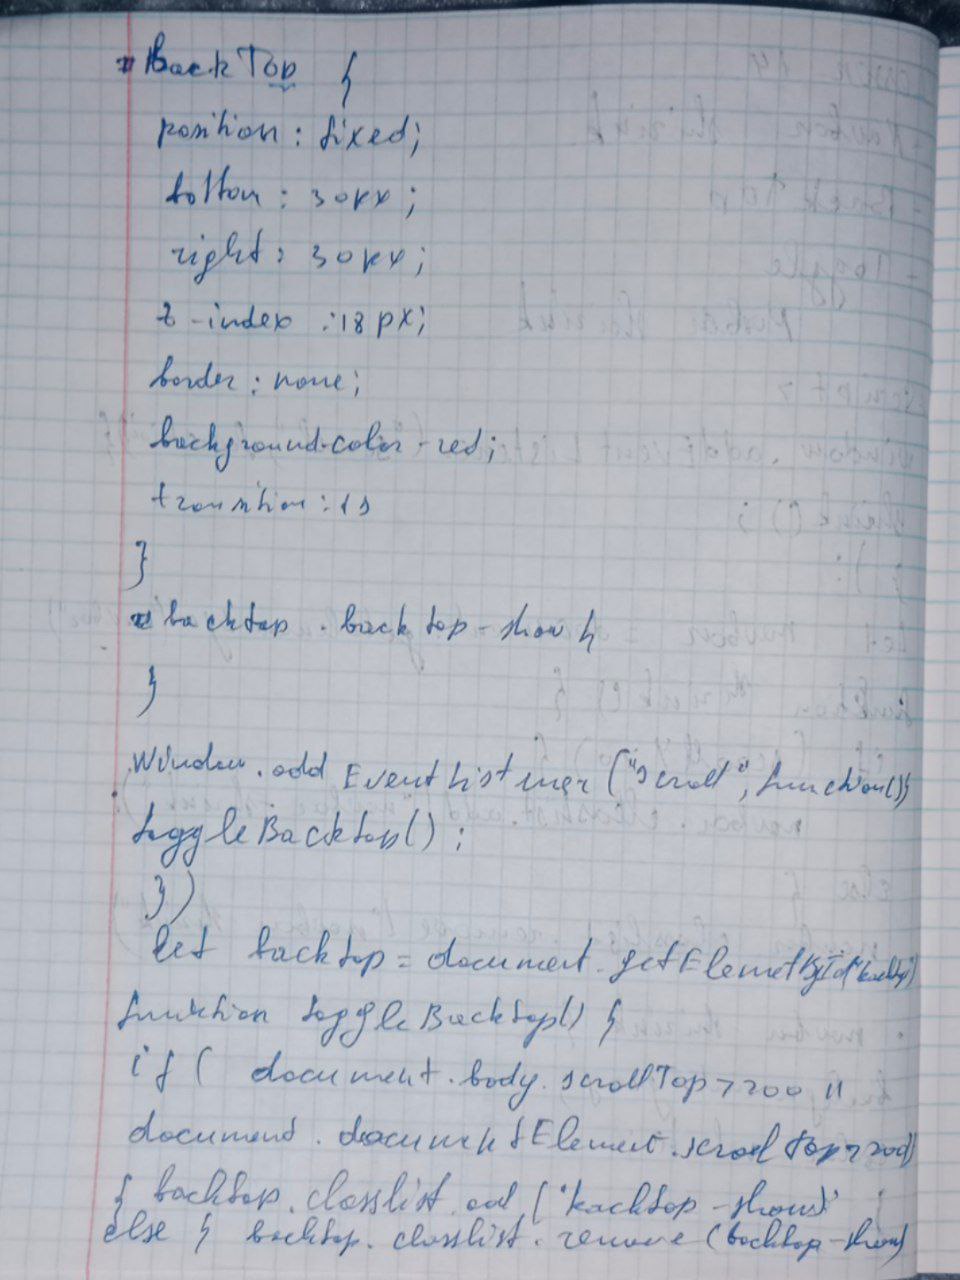 # BackTop {
position : fixed;
bottom : 30px ;
right : 30px ;
z-index : 18px;
border : none;
background-color - red;
transition : 1s
}
# backtop . backtop-show {
}
window . add EventListener ("scroll", function(){
toggleBacktop() ;
})
let backtop = document . getElemetById("backtop")
function toggleBacktop() {
if ( document . body . scrollTop > 200 ||
document . documentElement . scroll top > 200)
{ backtop . classlist . add ('backtop-show)' ;
else { backtop . classlist . remove (backtop-show)